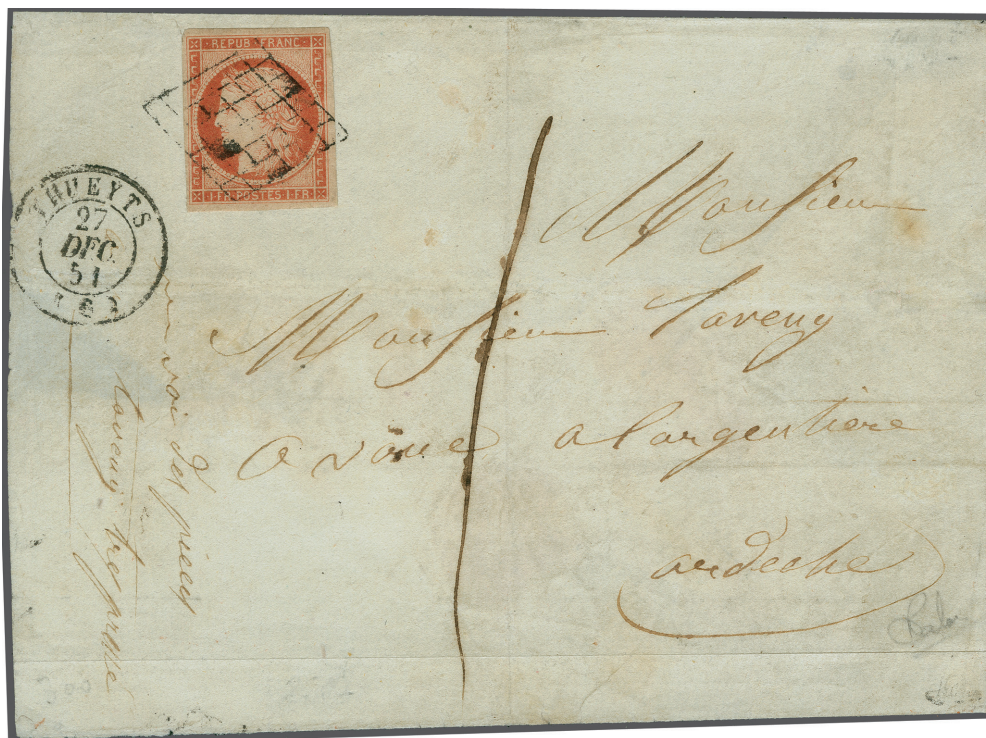 REPUB·FRANC·
1·FR·POSTES·1·FR·
THUEYTS
27
DEC.
51
Monsieur
Monsieur Taveny
avoué a Largentiere
ardeche
des pieces
taveny tres pressé